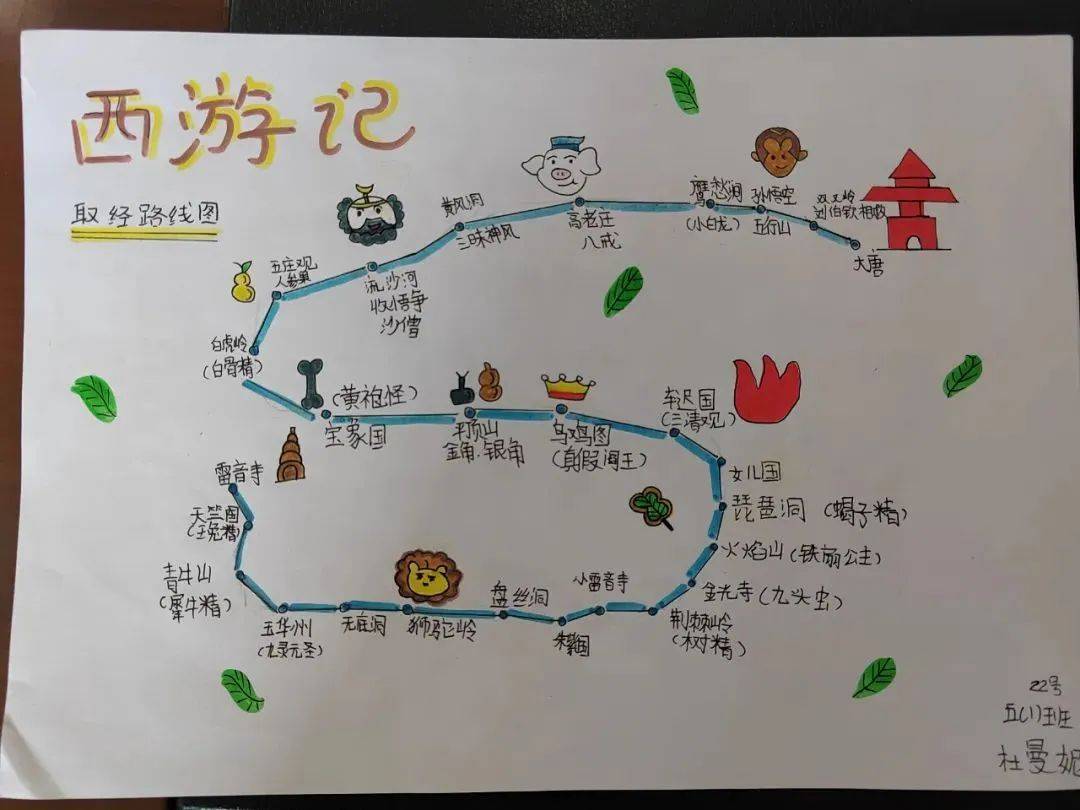 西游记
取经路线图
大唐
双叉岭
刘伯钦相救
孙悟空
五行山
鹰愁涧
(小白龙)
高老庄
八戒
黄风洞
三昧神风
流沙河
收悟净
沙僧
五庄观
人参果
白虎岭
(白骨精)
(黄袍怪)
宝象国
平顶山
金角.银角
乌鸡图
(真假国王)
车迟国
(三清观)
女儿国
琵琶洞(蝎子精)
火焰山(铁扇公主)
金光寺(九头虫)
荆棘岭
(树精)
小雷音寺
朱紫国
盘丝洞
狮驼岭
无底洞
玉华州
(九灵元圣)
青牛山
(犀牛精)
天竺国
(玉兔精)
雷音寺
22号
五(1)班
杜曼妮